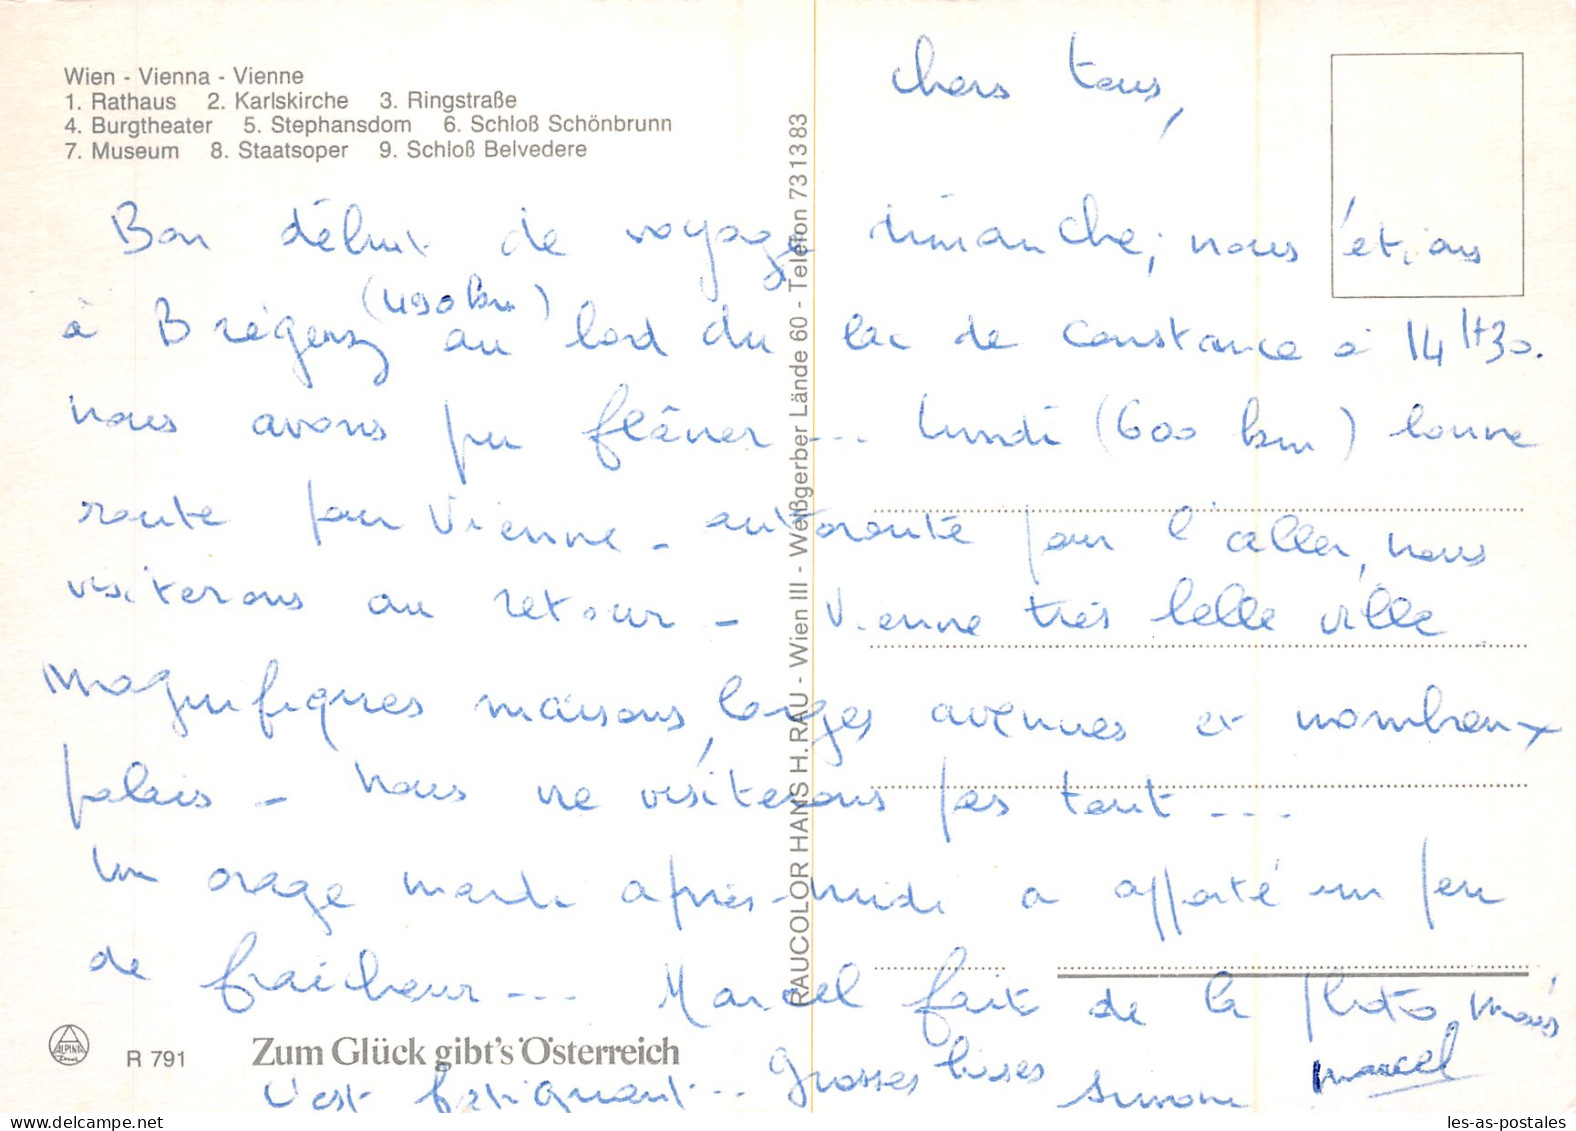 Wien - Vienna - Vienne
1. Rathaus 2. Karlskirche 3. Ringstraße
4. Burgtheater 5. Stephansdom 6. Schloß Schönbrunn
7. Museum 8. Staatsoper 9. Schloß Belvedere
chers tous,
Bon début de voyage dimanche, nous étions
à Brégenz (490 km) au bord du lac de constance à 14H30.
nous avons pu flâner... lundi (600 km) bonne
route par Vienne - autoroute pour l'aller, nous
visiterons au retour - Vienne très belle ville
magnifiques maisons, larges avenues et nombreux
palais - nous ne visiterons pas tout...
Un orage mardi après-midi a apporté un peu
de fraîcheur... Marcel fait de la photo, mais
c'est fatiguant... Grosses bises Simone Marcel
RAUCOLOR HANS H. RAU - Wien III - Weißgerber Lände 60 - Telefon 7313383
ALPINA
R 791
Zum Glück gibt's Österreich
les-as-postales